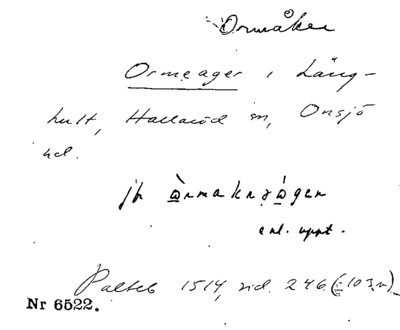 Ormåker
Ormeager i Läng-
hult, Hallaröd sn, Onsjö
hd.
jfr
enl. uppt.
Palteb 1514, sid. 246 (: 103 v)
Nr 6522.